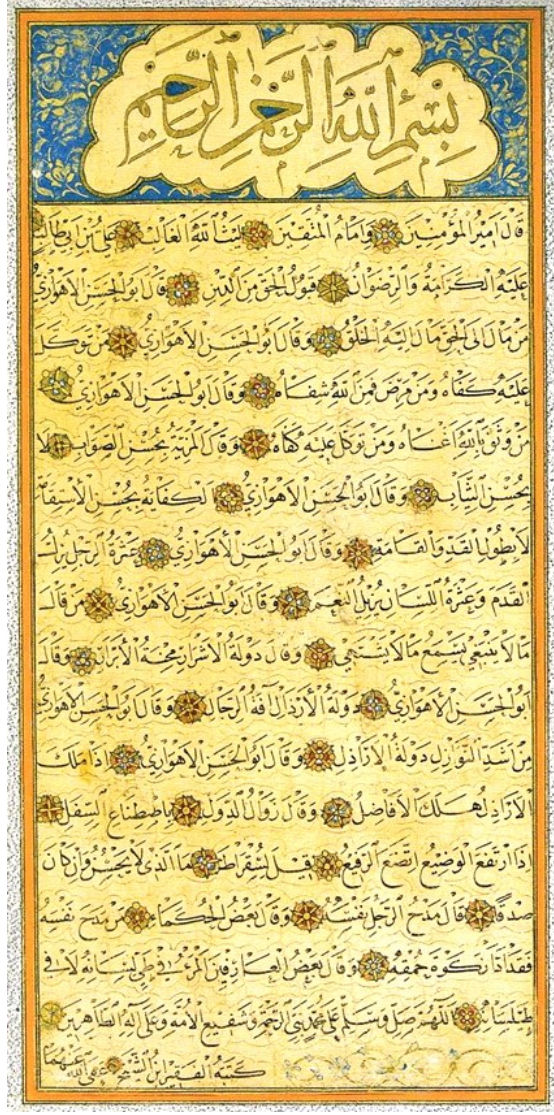 بسم الله الرحمن الرحيم
قال امير المؤمنين وامام المتقين ليث الله الغالب علي بن ابي طالب
عليه الكرامة والرضوان قبول الحق من الدين قال ابو الحسن الاهوازي
من مال الى الحق مال اليه الخلق وقال ابو الحسن الاهوازي من توكل
عليه كفاه ومن مرض فمن الله شفاه وقال ابو الحسن الاهوازي
من وثق بالله اغناه ومن توكل عليه كفاه وقال المرتبة بحسن الصواب لا
بحسن الثياب وقال ابو الحسن الاهوازي الكفاية بحسن الاستقامة
لا بطول القد والقامة وقال ابو الحسن الاهوازي عثرة الرجل
القدم وعثرة اللسان يزيل النعيم وقال ابو الحسن الاهوازي من قال
ما لا ينبغي يسمع ما لا يشتهي وقال دولة الاشرار محنة الابرار وقال
ابو الحسن الاهوازي دولة الارذال آفة الرجال وقال ابو الحسن الاهوازي
من اشد النوازل دولة الاراذل وقال ابو الحسن الاهوازي اذا ملك
الاراذل هلك الافاضل وقال زوال الدول باصطناع السفل
اذا ارتفع الوضيع اتضع الرفيع قيل لسقراط ما الذي لا يحسن وان كان
صدقا قال مدح الرجل نفسه وقال بعض الحكماء من مدح نفسه
فقد وقال بعض العارفين المرء في طي لسانه لا في
طيلسانه اللهم صل وسلم على محمد نبي الرحمة وشفيع الامة وعلى آله الطاهرين
كتبه الفقير ابن الشيخ عفى الله عنهما